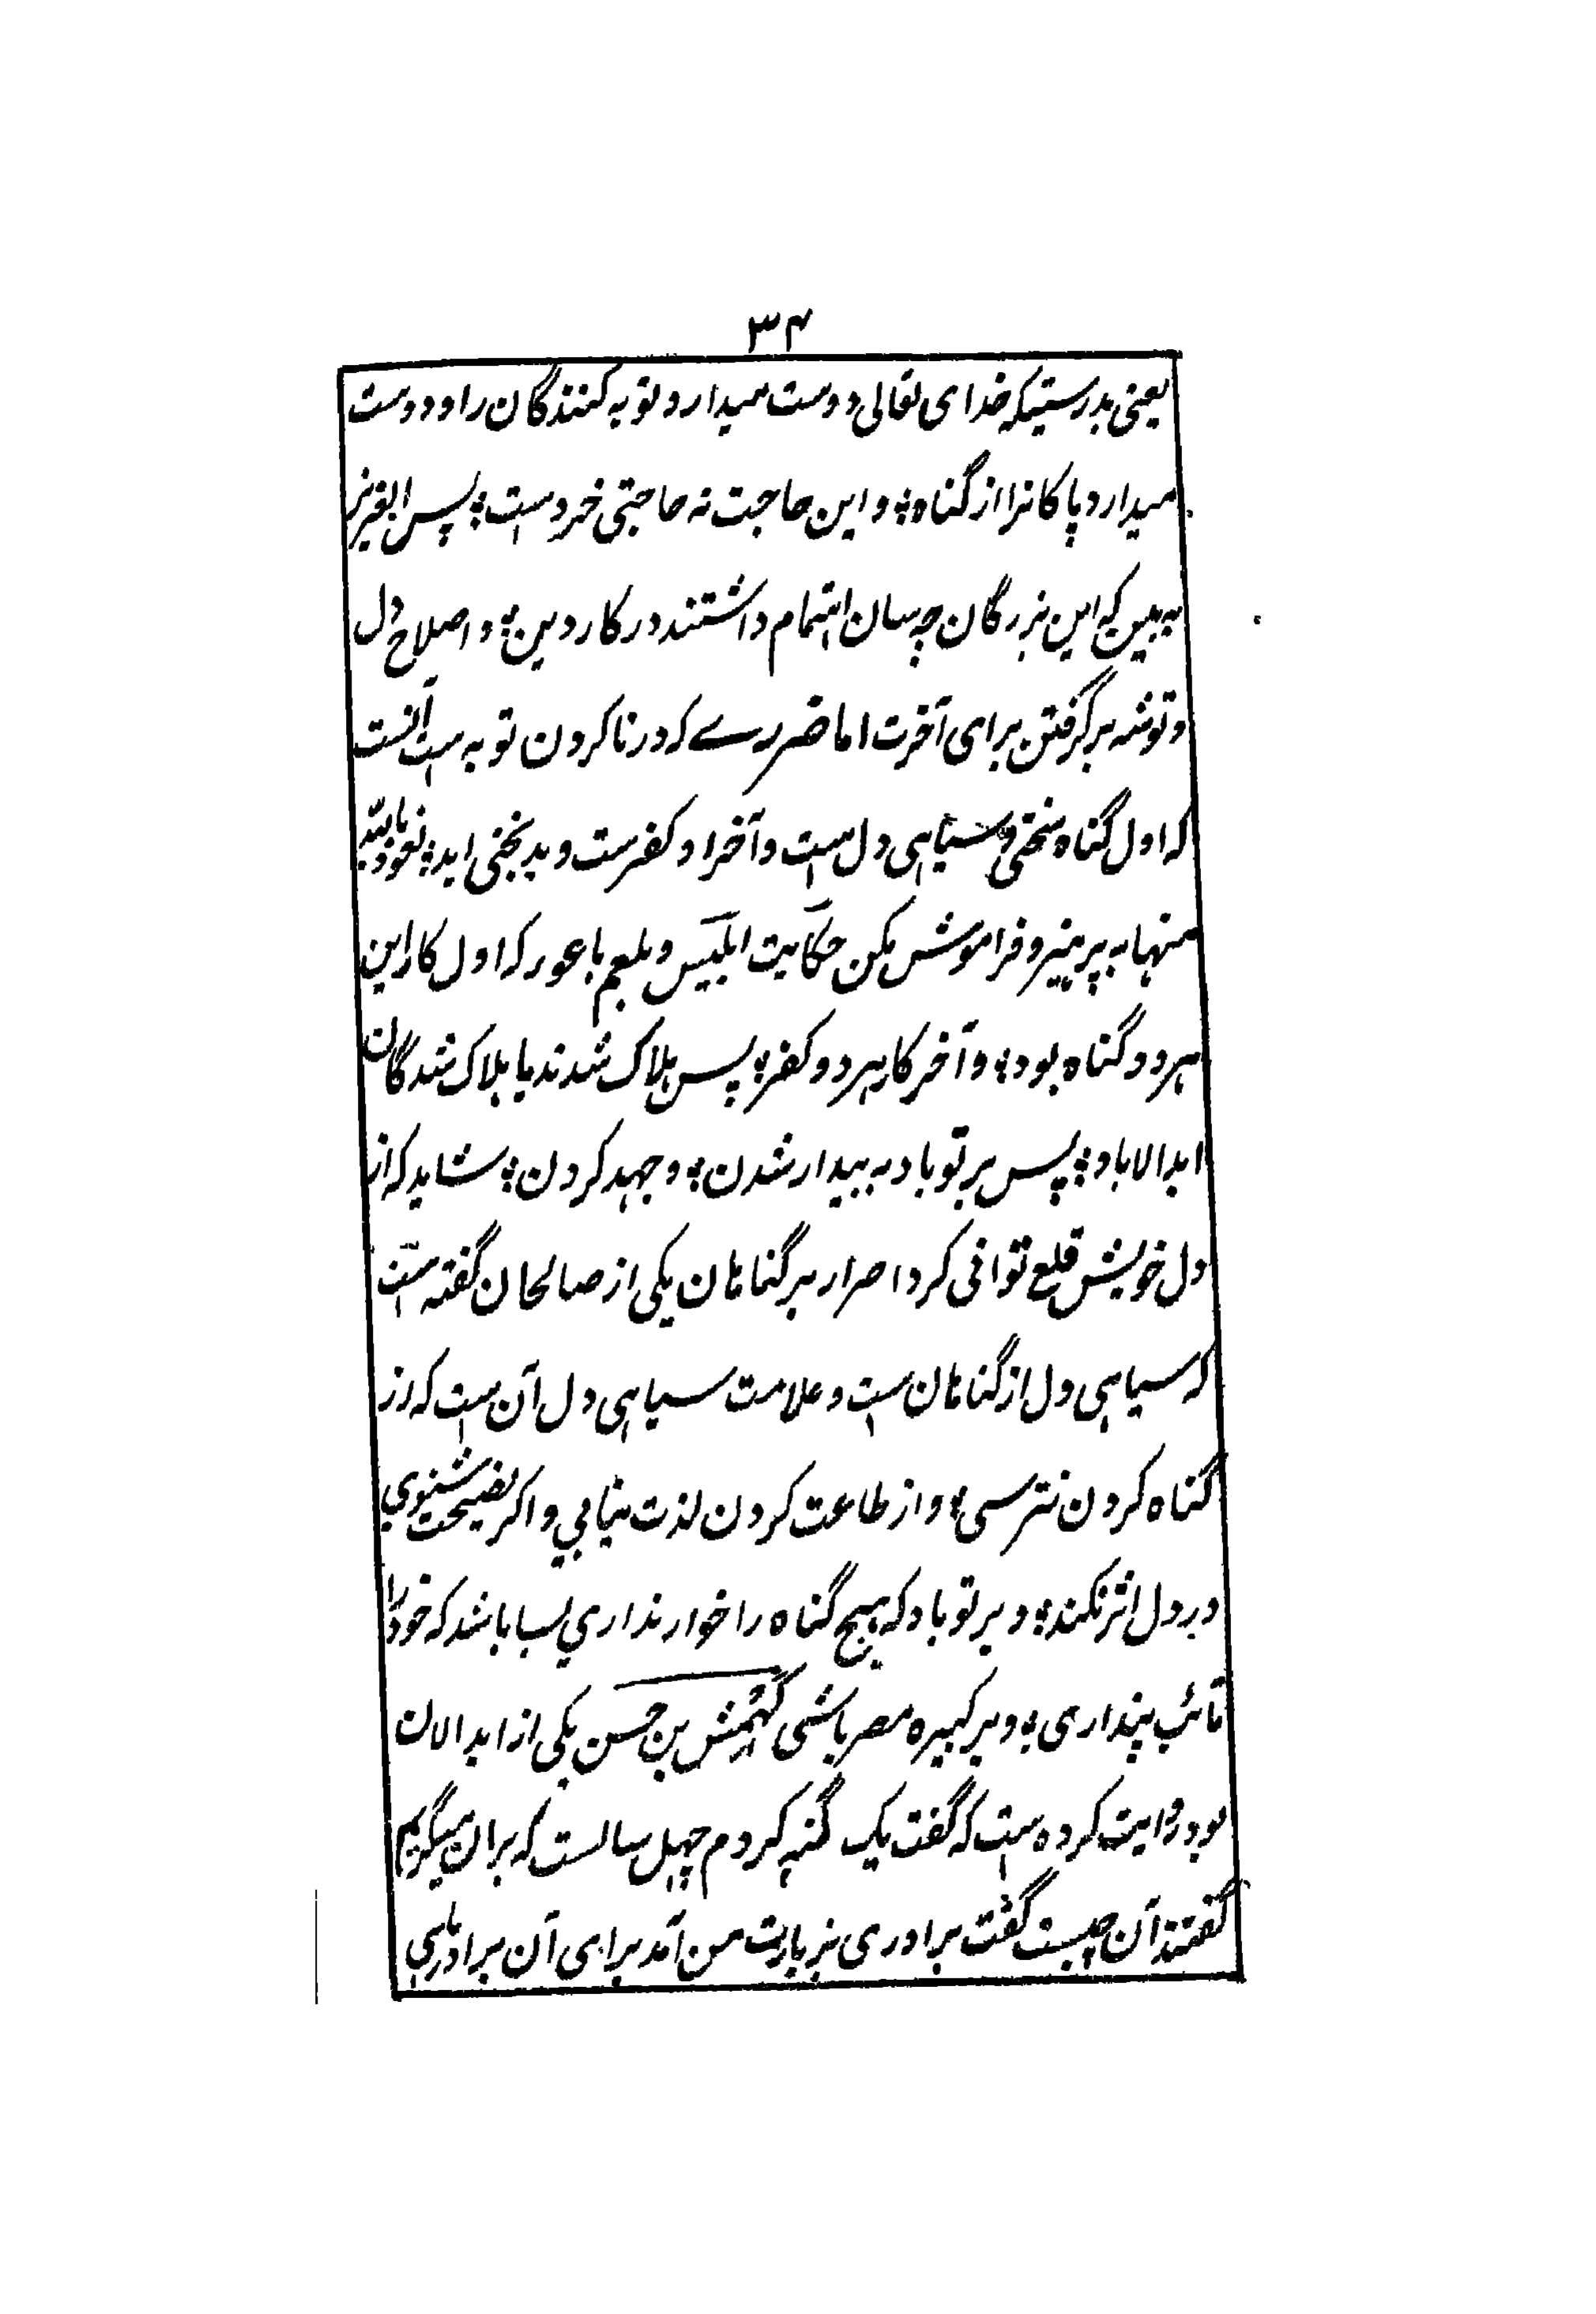 ۳۴
یعنی بدرستیکه خدای تعالی دوست میدارد توبه کنندگان را و دوست
میدارد پاکانرا از گناه ؛ و این حاجت نه حاجتی خردست ؛ پس ایعزیز
به بین که این بزرگان چه سان اهتمام داشتند در کار دین ؛ و اصلاح دل
و توشه برگرفتن برای آخرت اما ضررے که در نا کردن توبه است آنست
که اول گناه سختی و سیاهی دل است و آخر او کفرست و بدبختی ابد ؛ نعوذ بالله
منها به پرهیز و فراموش مکن حکایت ابلیس و بلعم باعور که اول کار این
هر دو گناه بود ؛ و آخر کار هر دو کفر ؛ پس هلاک شدند با هلاک شدگان
ابد الاباد ؛ پس بر تو باد به بیدار شدن ؛ و جهد کردن ؛ شاید که از
دل خویش قلع توانی کرد اصرار بر گناهان یکی از صالحان گفته است
که سیاهی دل از گناهان است و علامت سیاهی دل آن است که از
گناه کردن نترسی ؛ و از طاعت کردن لذت نیابي و اکر نصیحت شنوي
در دل اثر نکند ؛ و بر تو باد که هیچ گناه را خوار نداري بسا باشد که خود را
تائب پنداری ؛ و بر کبیره مصر باشی کهمش بن حسن یکی از ابدالان
بود روایت کرده است که گفت یک گنه کردم چهل سالست که بران میگریم
گفتند آن چیست گفت برادری بزیارت من آمد برای آن برادر ماهي